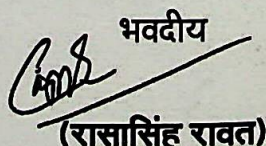 भवदीय
(रासासिंह रावत)